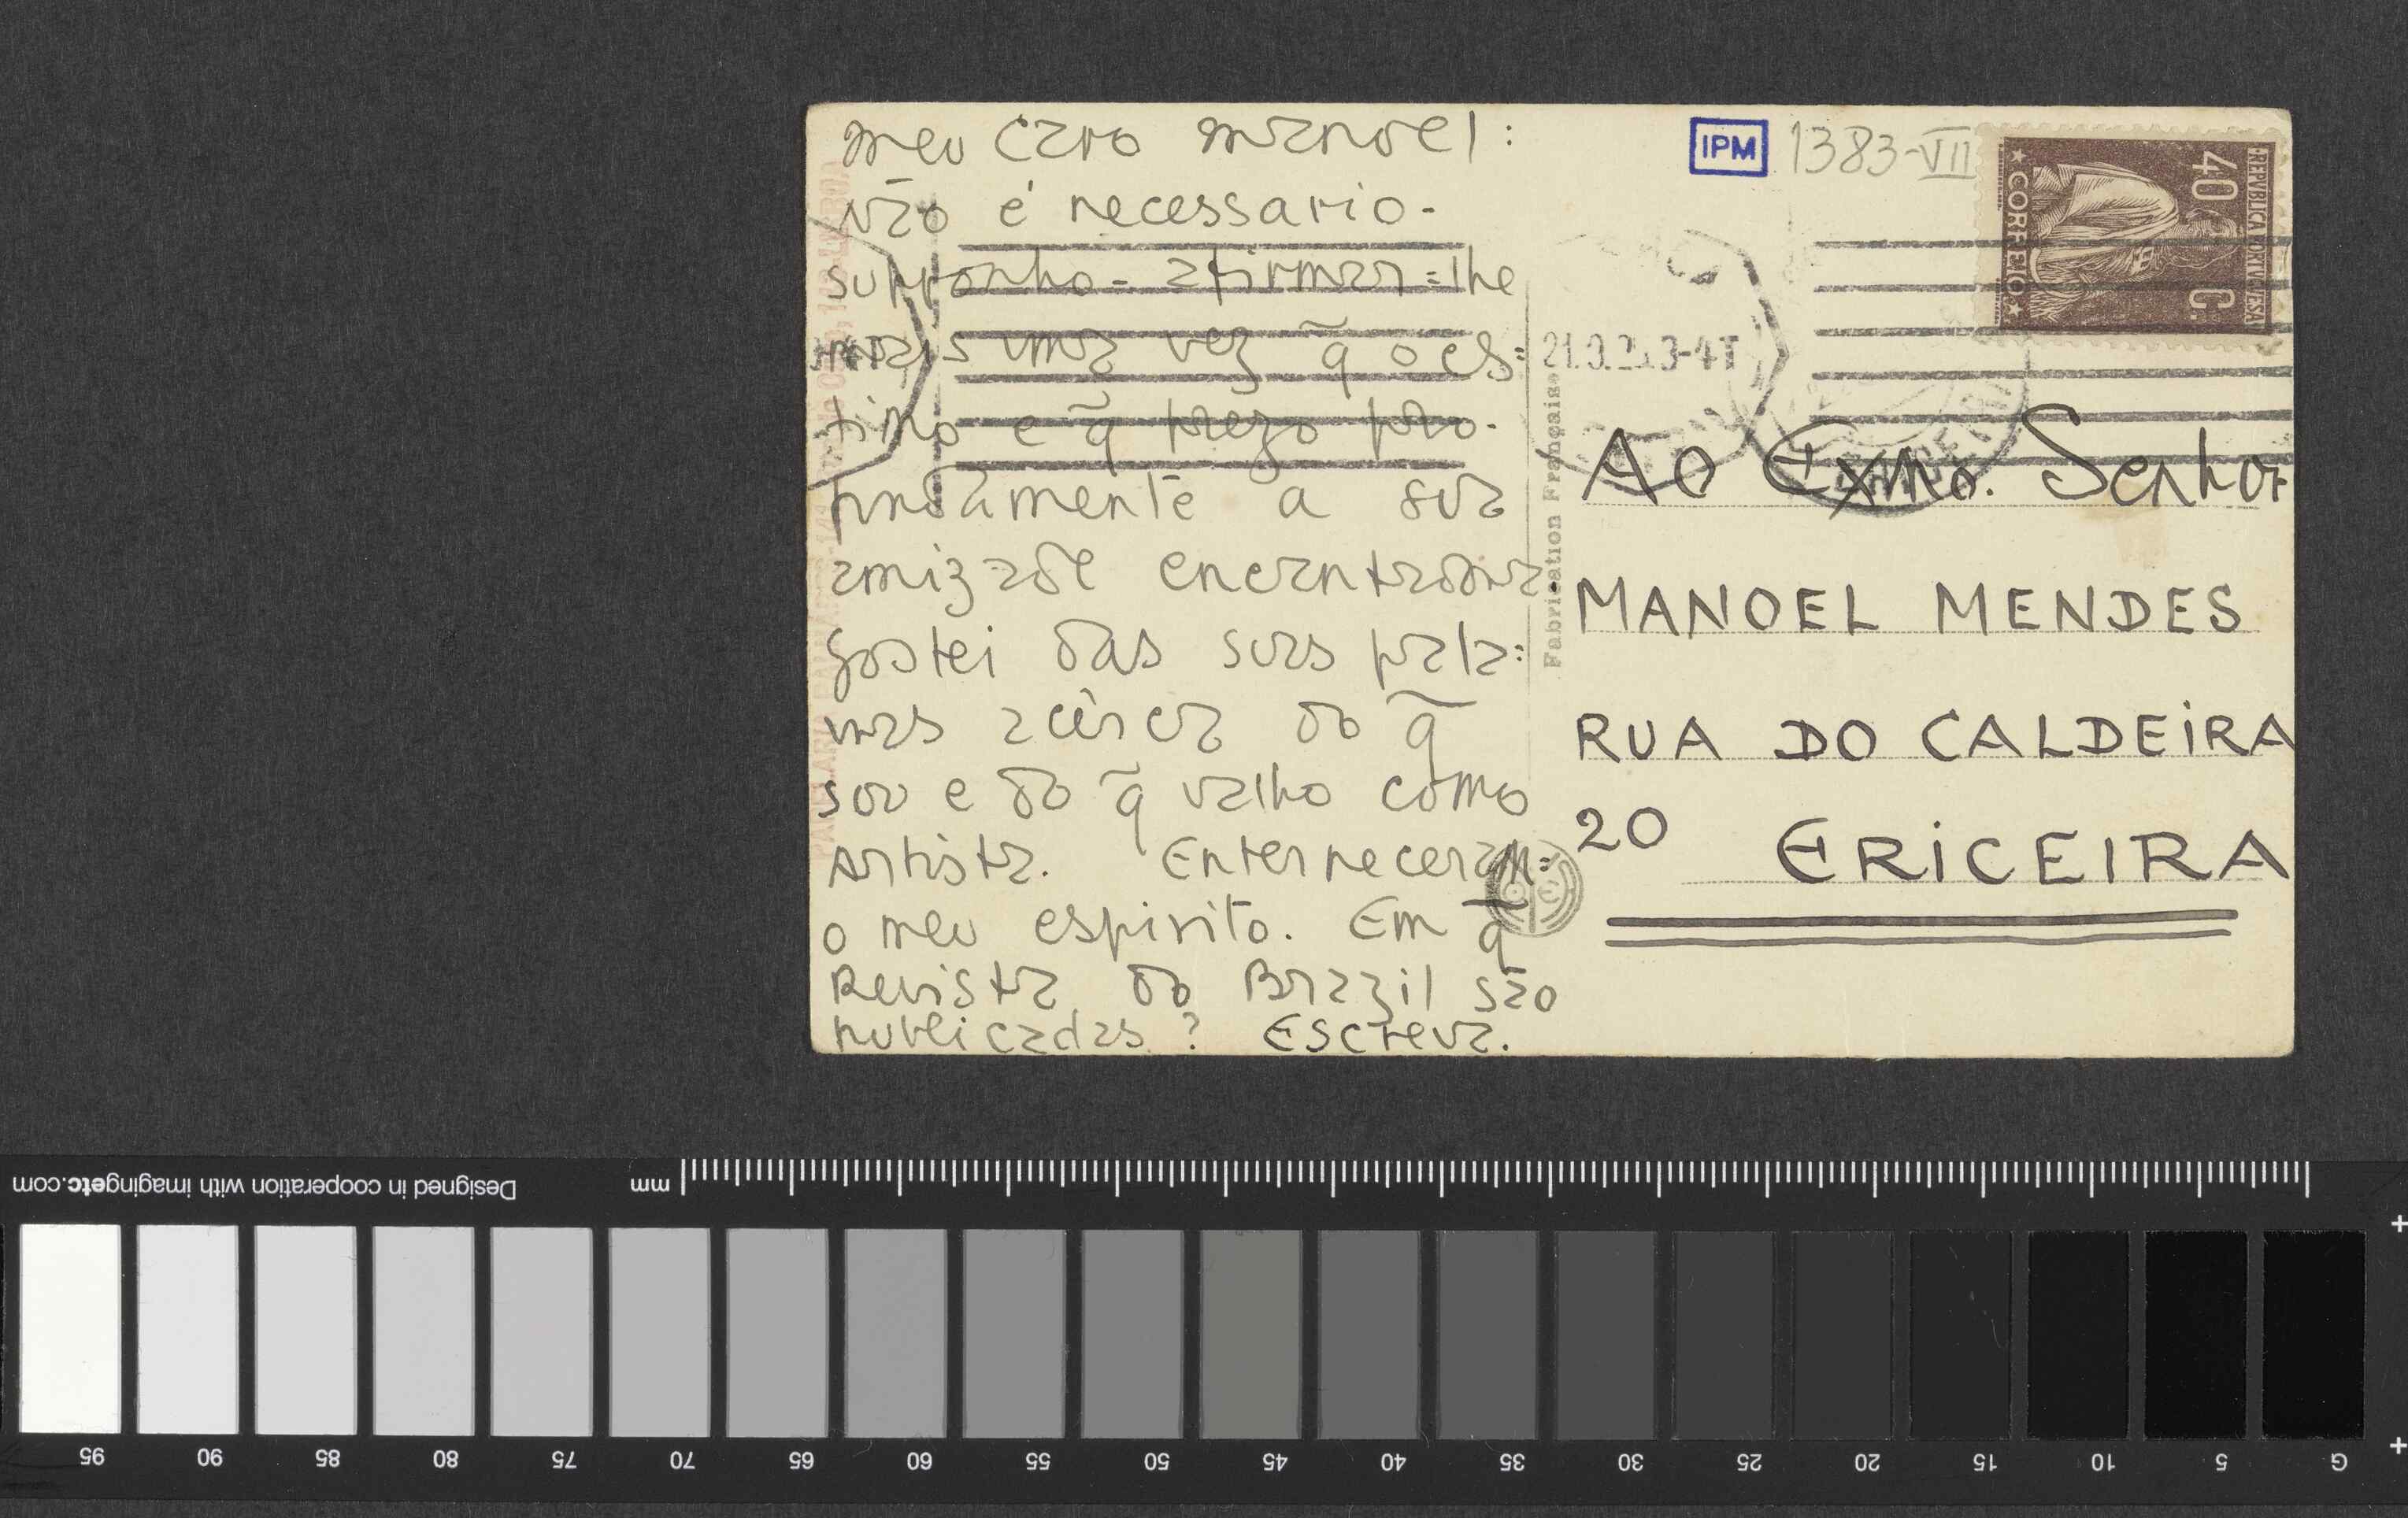 Meu caro Manoel:
Não é necessario-
supponho-afirmar=lhe
mais uma vez q̃ o es=
timo e q̃ prezo pro-
fundamente a sua
amizade encantadora
Gostei das suas pala=
vras acêrca do q̃
sou e do q̃ valho como
Artista. Enterneceram=
o meu espirito. Em q̃
Revista do Brazil são
publicadas? Escreva.
IPM 1383-VII
REPVBLICA PORTVGVESA
40 C.
CORREIO
3-4T
Fabrication Française
Ao Exmo. Senhor
MANOEL MENDES
RUA DO CALDEIRA
20 ERICEIRA
Designed in cooperation with imagingetc.com
mm
95 90 85 80 75 70 65 60 55 50 45 40 35 30 25 20 15 10 5 G